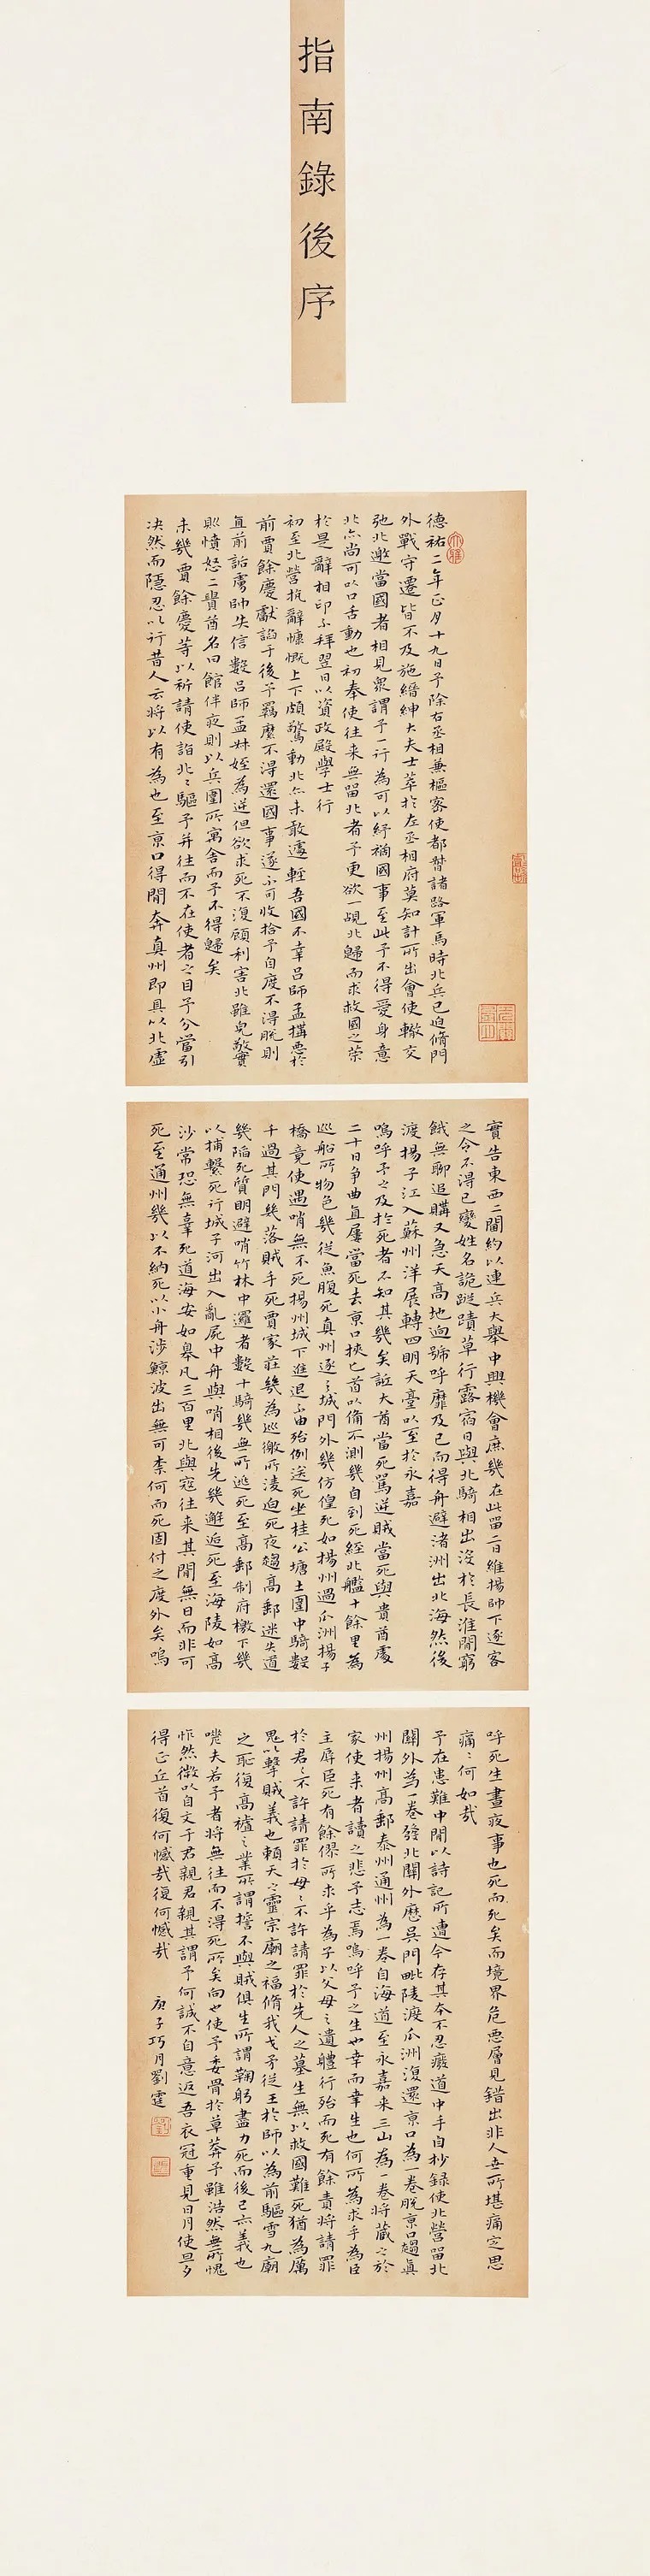 指南錄後序
德祐二年正月十九日予除右丞相兼樞密使都督諸路軍馬時北兵已迫脩門
外戰守遷皆不及施縉紳大夫士萃於左丞相府莫知計所出會使轍交
馳北邀當國者相見眾謂予一行為可以紓禍國事至此予不得愛身意
北亦尚可以口舌動也初奉使往来無留北者予更欲一覘北歸而求救國之策
於是辭相印不拜翌日以資政殿學士行
初至北營抗辭慷慨上下頗驚動北亦未敢遽輕吾國不幸呂師孟搆惡於
前賈餘慶獻諂于後予羈縻不得還國事遂不可收拾予自度不得脫則
直前詬虜帥失信數呂師孟叔姪為逆但欲求死不復顧利害北雖皃敬實
則憤怒二貴酋名曰館伴夜則以兵圍所寓舍而予不得歸矣
未幾賈餘慶等以祈請使詣北〻驅予并往而不在使者之目予分當引
决然而隱忍以行昔人云將以有為也至京口得閒奔真州即具以北虛
實告東西二閫約以連兵大舉中興機會庶幾在此留二日維揚帥下逐客
之令不得已變姓名詭蹤蹟草行露宿日與北騎相出沒於長淮閒窮
餓無聊追購又急天高地迥號呼靡及已而得舟避渚洲出北海然後
渡揚子江入蘇州洋展轉四明天臺以至於永嘉
嗚呼予之及於死者不知其幾矣詆大酋當死罵逆賊當死與貴酋處
二十日爭曲直屢當死去京口挾匕首以備不測幾自剄死經北艦十餘里為
巡船所物色幾從魚腹死真州逐之城門外幾彷徨死如揚州過瓜洲揚子
橋竟使遇哨無不死揚州城下進退不由殆例送死坐桂公塘土圍中騎數
千過其門幾落賊手死賈家莊幾為巡徼所淩迫死夜趨高郵迷失道
幾陷死質明避哨竹林中邏者數十騎幾無所逃死至高郵制府檄下幾
以捕繫死行城子河出入亂屍中舟與哨相後先幾邂逅死至海陵如高
沙常恐無辜死道海安如皋凡三百里北與寇往来其閒無日而非可
死至通州幾以不納死以小舟涉鯨波出無可柰何而死固付之度外矣嗚
呼死生晝夜事也死而死矣而境界危惡層見錯出非人世所堪痛定思
痛〻何如哉
予在患難中閒以詩記所遭今存其本不忍廢道中手自抄錄使北營留北
關外為一卷發北關外歷吳門毗陵渡瓜洲復還京口為一卷脫京口趨真
州揚州高郵泰州通州為一卷自海道至永嘉来三山為一卷將藏之於
家使来者讀之悲予志焉嗚呼予之生也幸而幸生也何所為求乎為臣
主辱臣死有餘僇所求乎為子以父母之遺體行殆而死有餘責將請罪
於君〻不許請罪於母〻不許請罪於先人之墓生無以救國難死猶為厲
鬼以擊賊義也賴天之靈宗廟之福脩我戈矛從王於師以為前驅雪九廟
之恥復高祖之業所謂誓不與賊俱生所謂鞠躬盡力死而後已亦義也
嗟夫若予者將無往而不得死所矣向也使予委骨於草莽予雖浩然無所愧
怍然微以自文于君親君親其謂予何誠不自意返吾衣冠重見日月使旦夕
得正丘首復何憾哉復何憾哉 庚子巧月劉霆